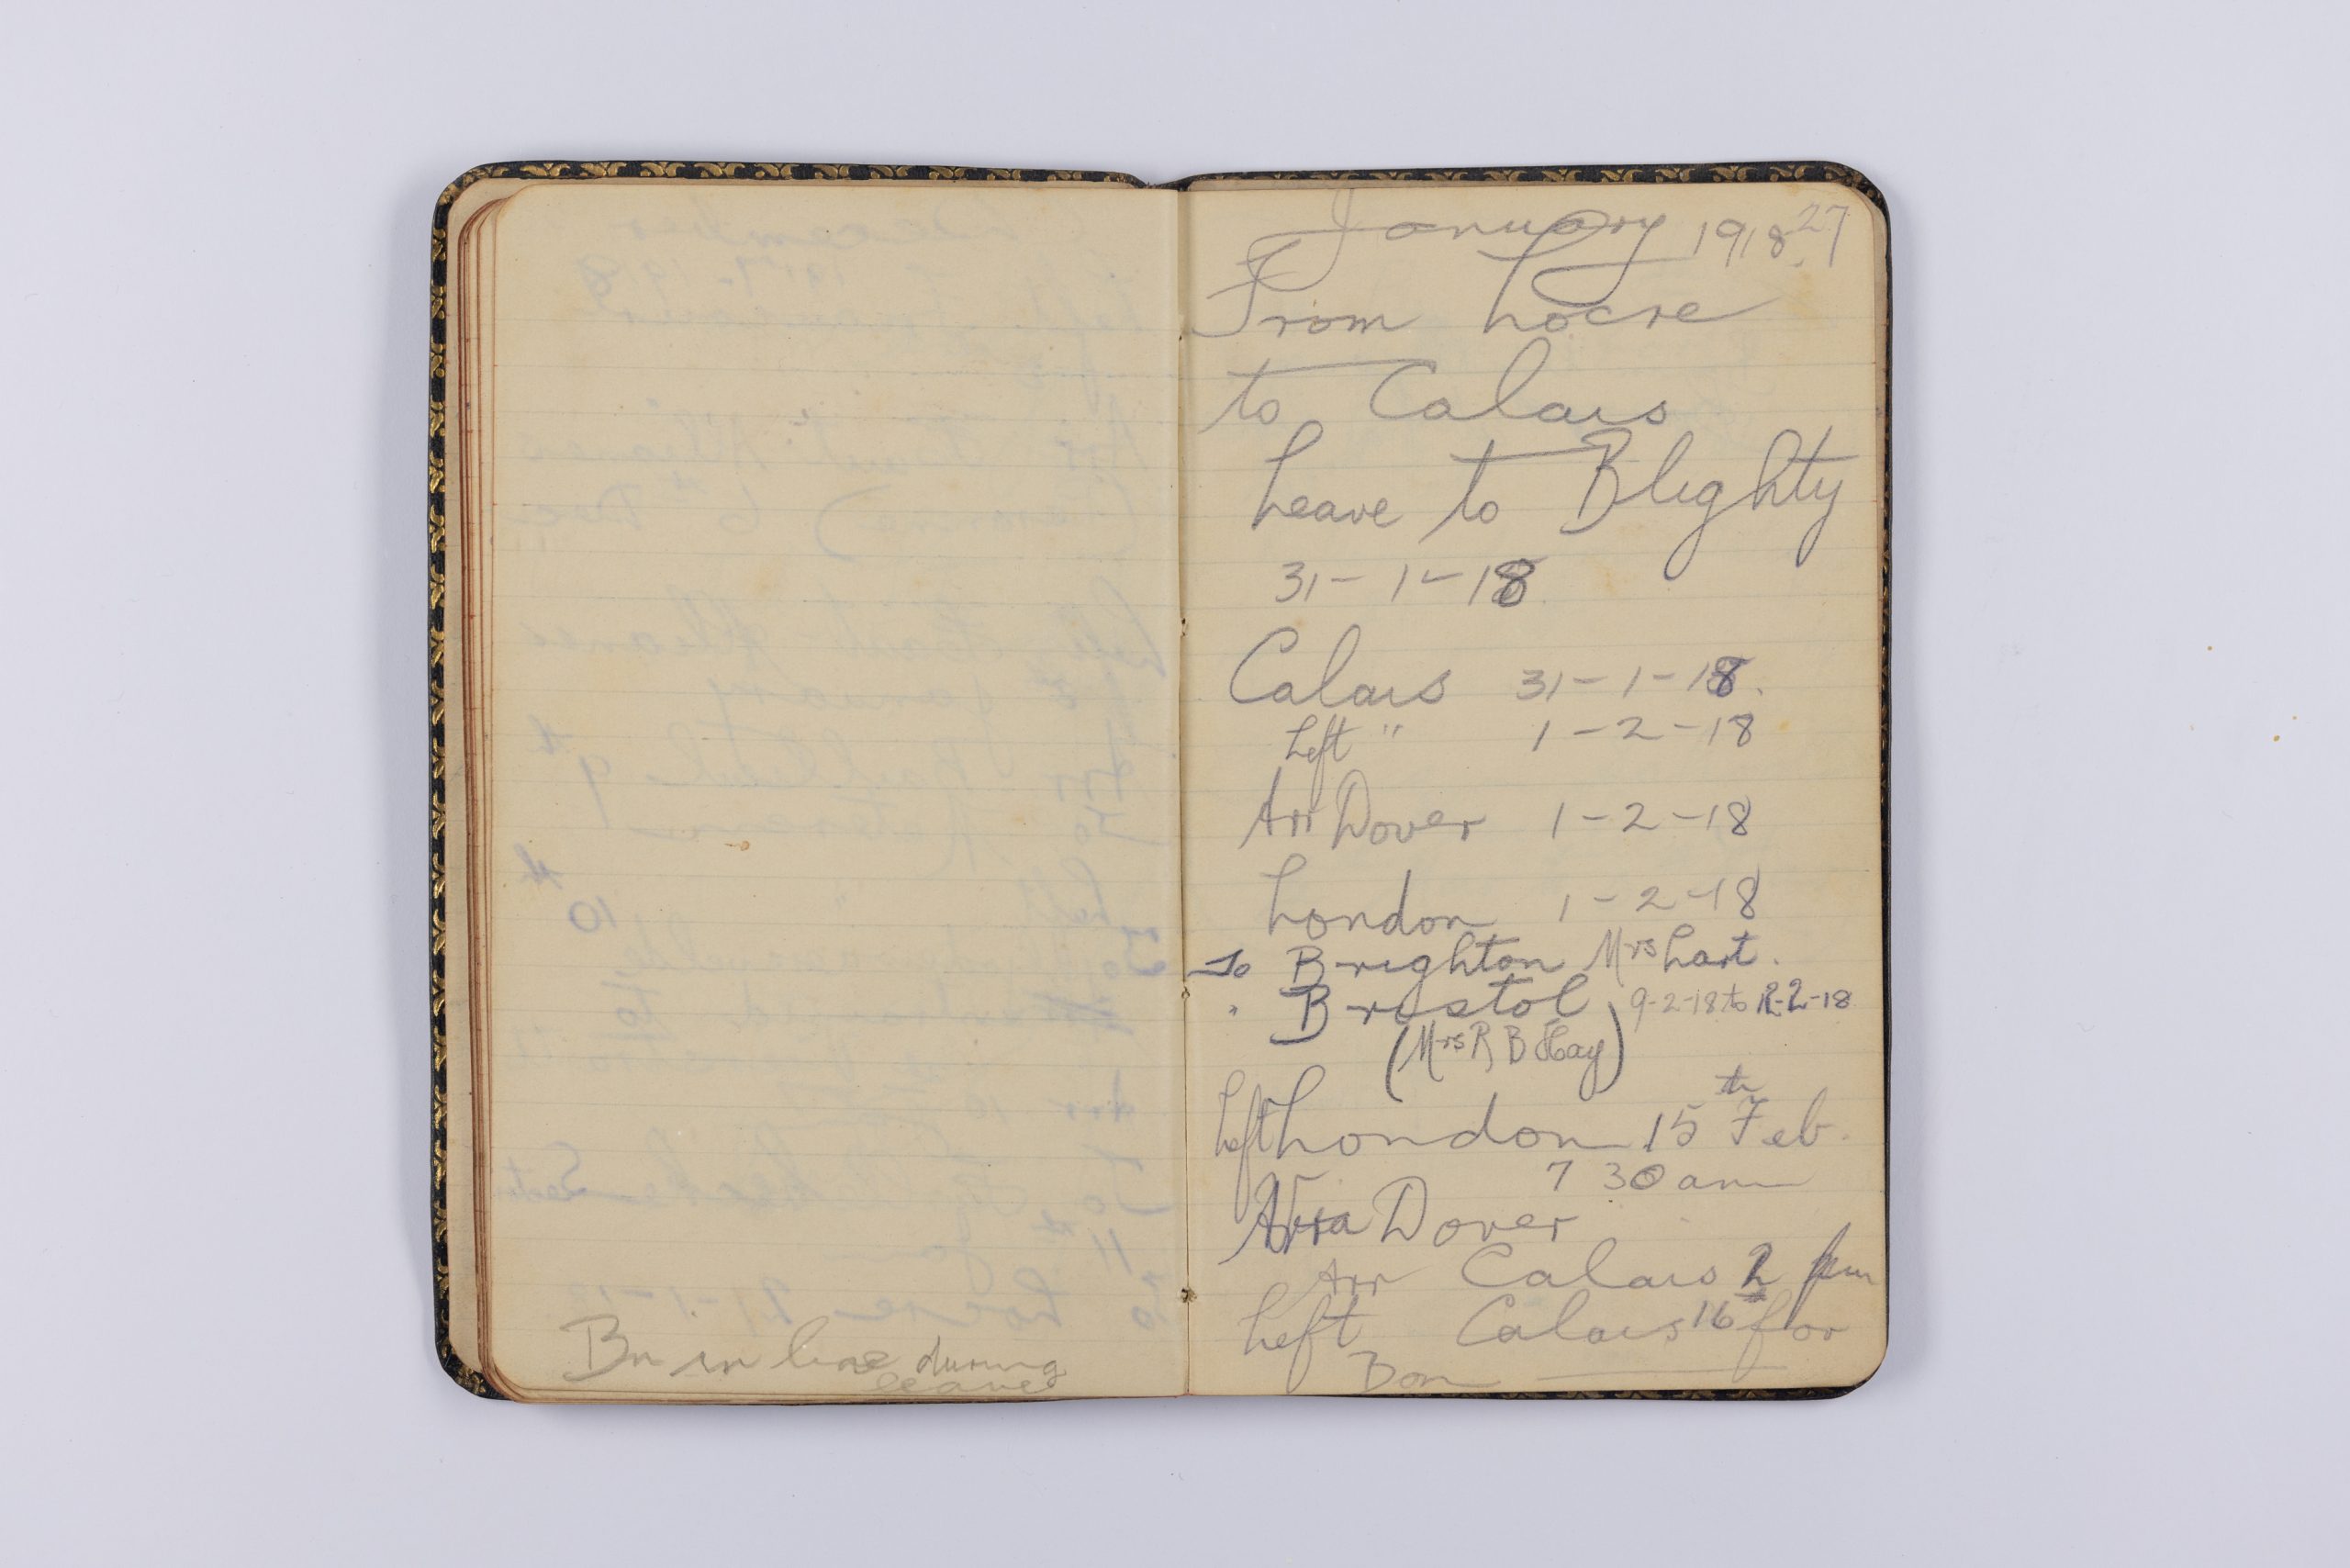 Bn in line during
leave
January 1918. 27
From Locre
to Calais
Leave to Blighty
31-1-18
Calais 31-1-18.
Left " 1-2-18
Arr Dover 1-2-18
London 1-2-18
To Brighton Mrs Lart.
" Bristol 9-2-18 to 12-2-18
(Mrs R B Hay)
Left London 15th Feb.
7 30 am
Via Dover
Arr Calais 2 pm
Left Calais 16 for
Bon